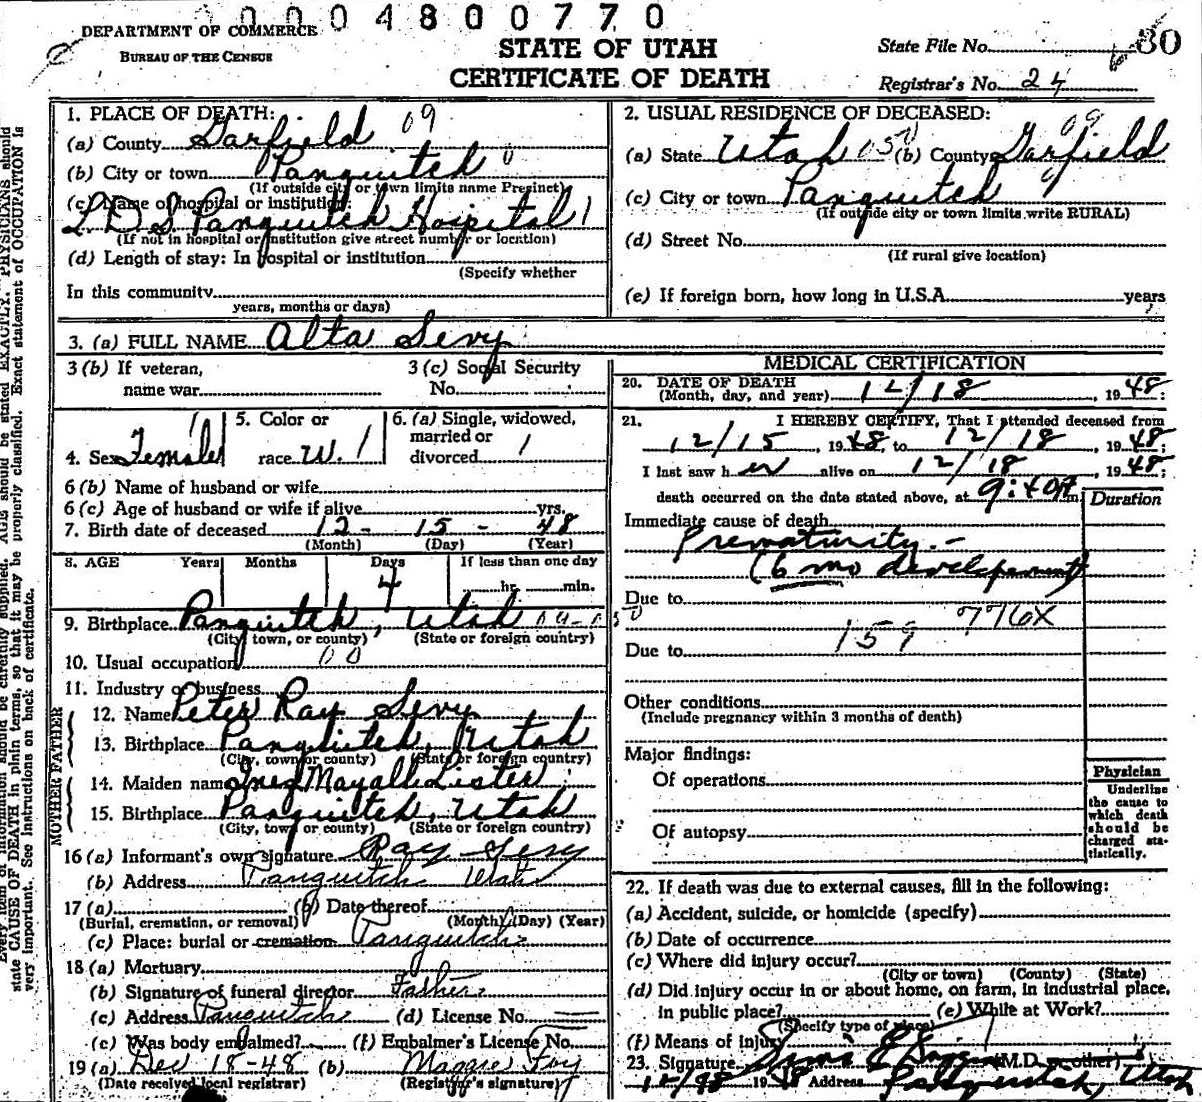 0 0 0 4 8 0 0 7 7 0
DEPARTMENT OF COMMERCE
BUREAU OF THE CENSUS
STATE OF UTAH
CERTIFICATE OF DEATH
State File No. 80
Registrar's No. 24
1. PLACE OF DEATH:
(a) County Garfield 09
(b) City or town Panguitch 0
(If outside city or town limits name Precinct)
(c) Name of hospital or institution:
L D S Panguitch Hospital 1
(If not in hospital or institution give street number or location)
(d) Length of stay: In hospital or institution
(Specify whether
In this community
years, months or days)
2. USUAL RESIDENCE OF DECEASED:
09
(a) State Utah 050 (b) County Garfield
(c) City or town Panguitch
(If outside city or town limits write RURAL)
(d) Street No.
(If rural give location)
(e) If foreign born, how long in U.S.A. years
3. (a) FULL NAME Alta Sevy
3 (b) If veteran,
name war
3 (c) Social Security
No.
4. Sex Female 1
5. Color or
race W. 1
6. (a) Single, widowed,
married or
divorced 1
6 (b) Name of husband or wife
6 (c) Age of husband or wife if alive yrs.
7. Birth date of deceased 12 - 15 - 48
(Month) (Day) (Year)
8. AGE Years Months Days If less than one day
4 hr. min.
9. Birthplace Panguitch, Utah
(City, town, or county) (State or foreign country)
10. Usual occupation 00
11. Industry or business
FATHER
12. Name Peter Ray Sevy
13. Birthplace Panguitch, Utah
(City, town or county) (State or foreign country)
MOTHER
14. Maiden name Inez Mayall Lister
15. Birthplace Panguitch, Utah
(City, town or county) (State or foreign country)
16 (a) Informant's own signature Ray Sevy
(b) Address Panguitch Utah
17 (a) (b) Date thereof
(Burial, cremation, or removal) (Month) (Day) (Year)
(c) Place: burial or cremation Panguitch
18 (a) Mortuary
(b) Signature of funeral director Father
(c) Address Panguitch (d) License No.
(e) Was body embalmed? (f) Embalmer's License No.
19 (a) Dec 18-48 (b) Maggie Foy
(Date received local registrar) (Registrar's signature)
MEDICAL CERTIFICATION
20. DATE OF DEATH
(Month, day, and year) 12/18, 1948;
21. I HEREBY CERTIFY, That I attended deceased from
12/15, 1948, to 12/18, 1948;
I last saw h er alive on 12/18, 1948;
death occurred on the date stated above, at 9:40 A m.
Duration
Immediate cause of death
Prematurity. -
(6 mo development)
Due to
776X
159
Due to
Other conditions
(Include pregnancy within 3 months of death)
Major findings:
Of operations
Of autopsy
Physician
Underline
the cause to
which death
should be
charged sta-
tistically.
22. If death was due to external causes, fill in the following:
(a) Accident, suicide, or homicide (specify)
(b) Date of occurrence
(c) Where did injury occur?
(City or town) (County) (State)
(d) Did injury occur in or about home, on farm, in industrial place,
in public place? (e) While at Work?
(Specify type of place)
(f) Means of injury
23. Signature Sims E (M.D. or other)
1948 Address Panguitch, Utah
Every item of information should be carefully supplied. AGE should be stated EXACTLY. PHYSICIANS should
state CAUSE OF DEATH in plain terms, so that it may be properly classified. Exact statement of OCCUPATION is
very important. See instructions on back of certificate.